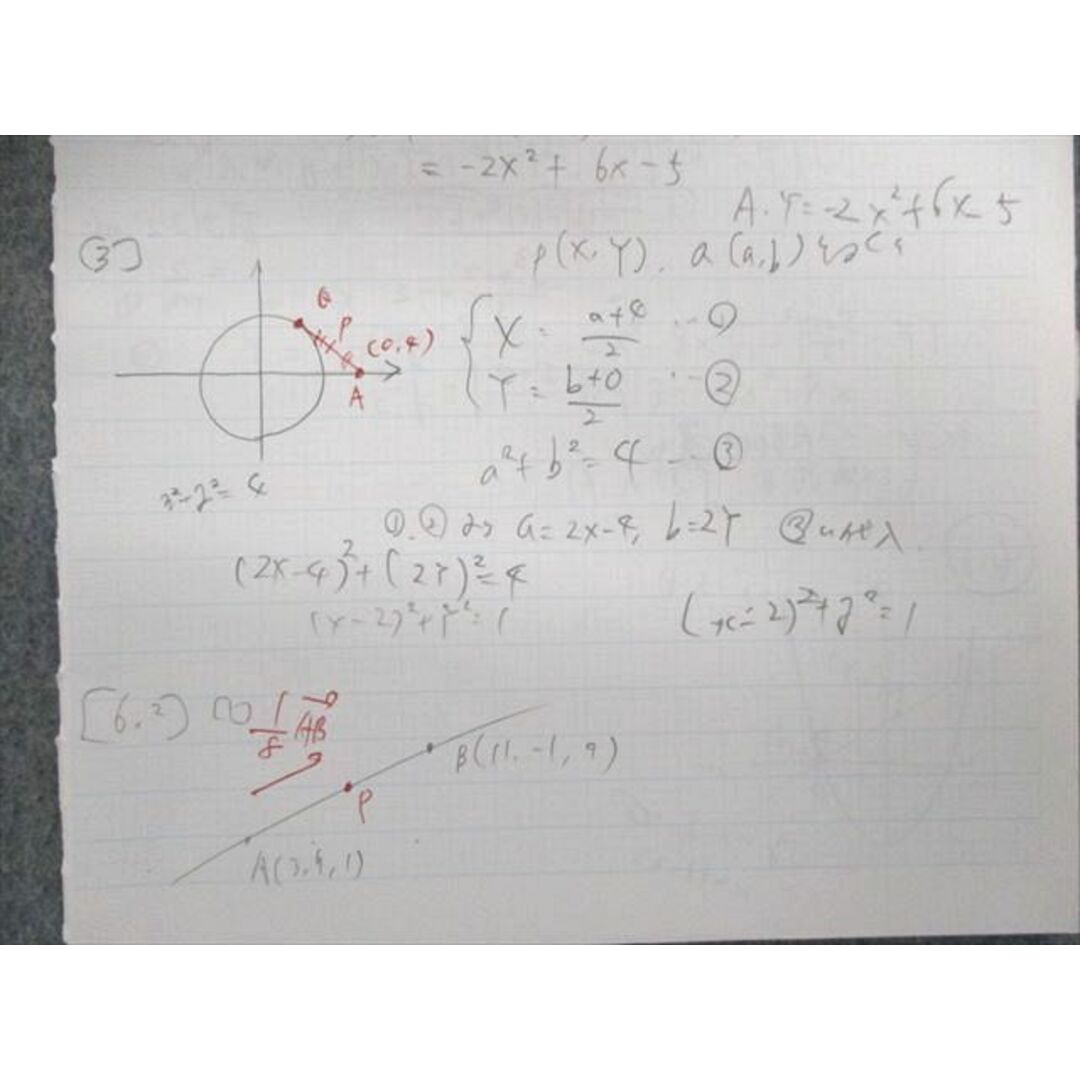 = -2x² + 6x - 5
A. Y = -2x² + 6x 5
(3)
P(X, Y). a(a, b) とおく
Q
P
(0, 4)
A
X = a+4/2 ... ①
Y = b+0/2 ... ②
a² + b² = 4 ... ③
= 4
①.② より a = 2x-4, b = 2Y ③に代入
(2x-4)² + (2Y)² = 4
(x-2)² + Y² = 1
(x-2)² + y² = 1
[6.2]
1/8 AB
P
B(11, -1, 9)
A(3, 4, 1)